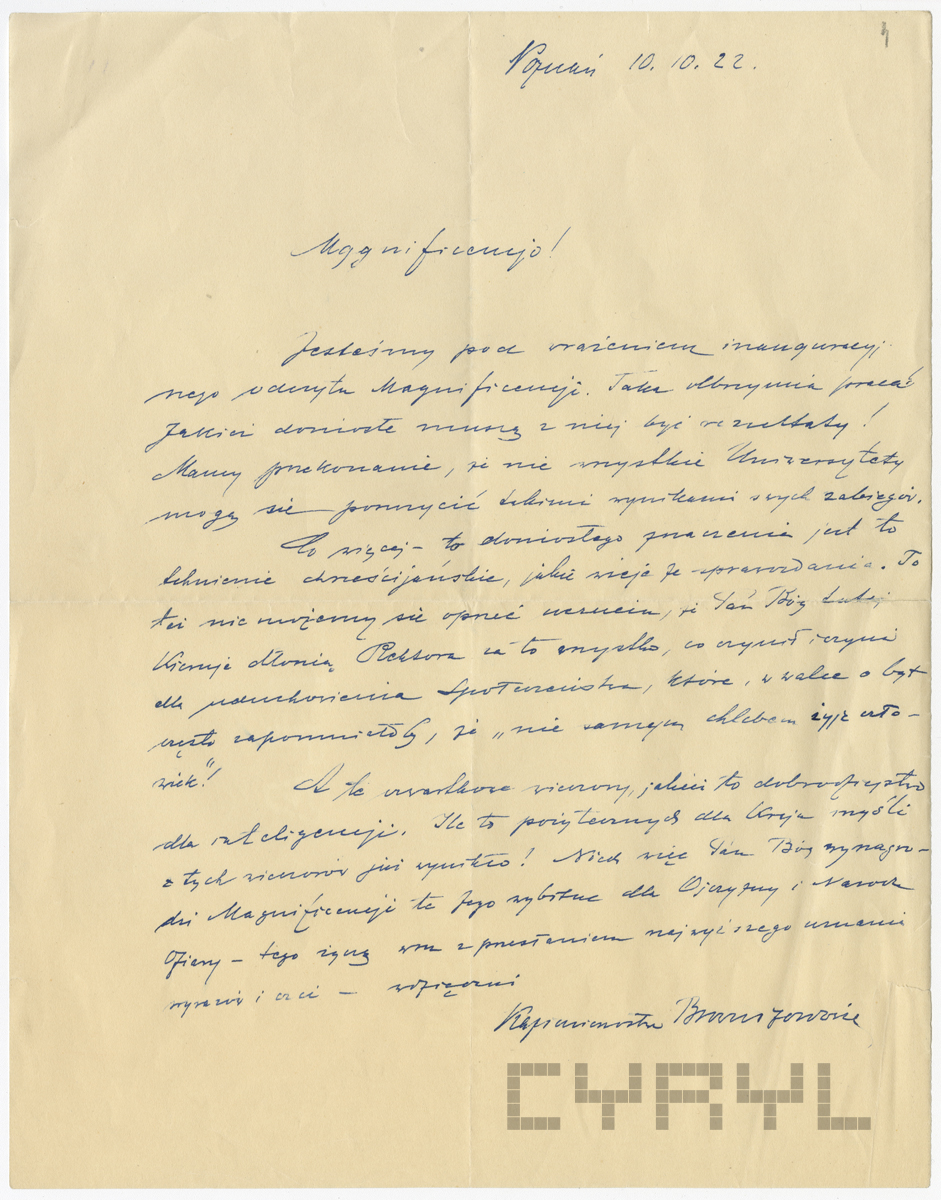 Poznań 10.10.22.
Magnificencjo!
Jesteśmy pod wrażeniem inauguracyj-
nego odczytu Magnificencji. Taka olbrzymia praca!
Jakież doniosłe muszą z niej być rezultaty!
Mamy przekonanie, że nie wszystkie Uniwersytety
mogą się poszczycić takimi wynikami swych zabiegów.
Co więcej – to doniosłego znaczenia jest to
tchnienie chrześcijańskie, jakie wieje ze sprawozdania. To
też nie możemy się oprzeć uczuciu, że Pan Bóg tutaj
kieruje dłonią Rektora za to wszystko, co czynił i czyni
dla uduchowienia społeczeństwa, które, w walce o byt
często zapomniałoby, że „nie samym chlebem żyje czło-
wiek"!
A te czwartkowe wieczory, jakież to dobrodziejstwo
dla inteligencji. Ile to pożytecznych dla Kraju myśli
z tych wieczorów już wynikło! Niech więc Pan Bóg wynagro-
dzi Magnificencji te Jego wybitne dla Ojczyzny i Narodu
Ofiary – tego życzą wraz z przesłaniem najwyższego uznania
wyrazów i czci – wdzięczni
CYRYL